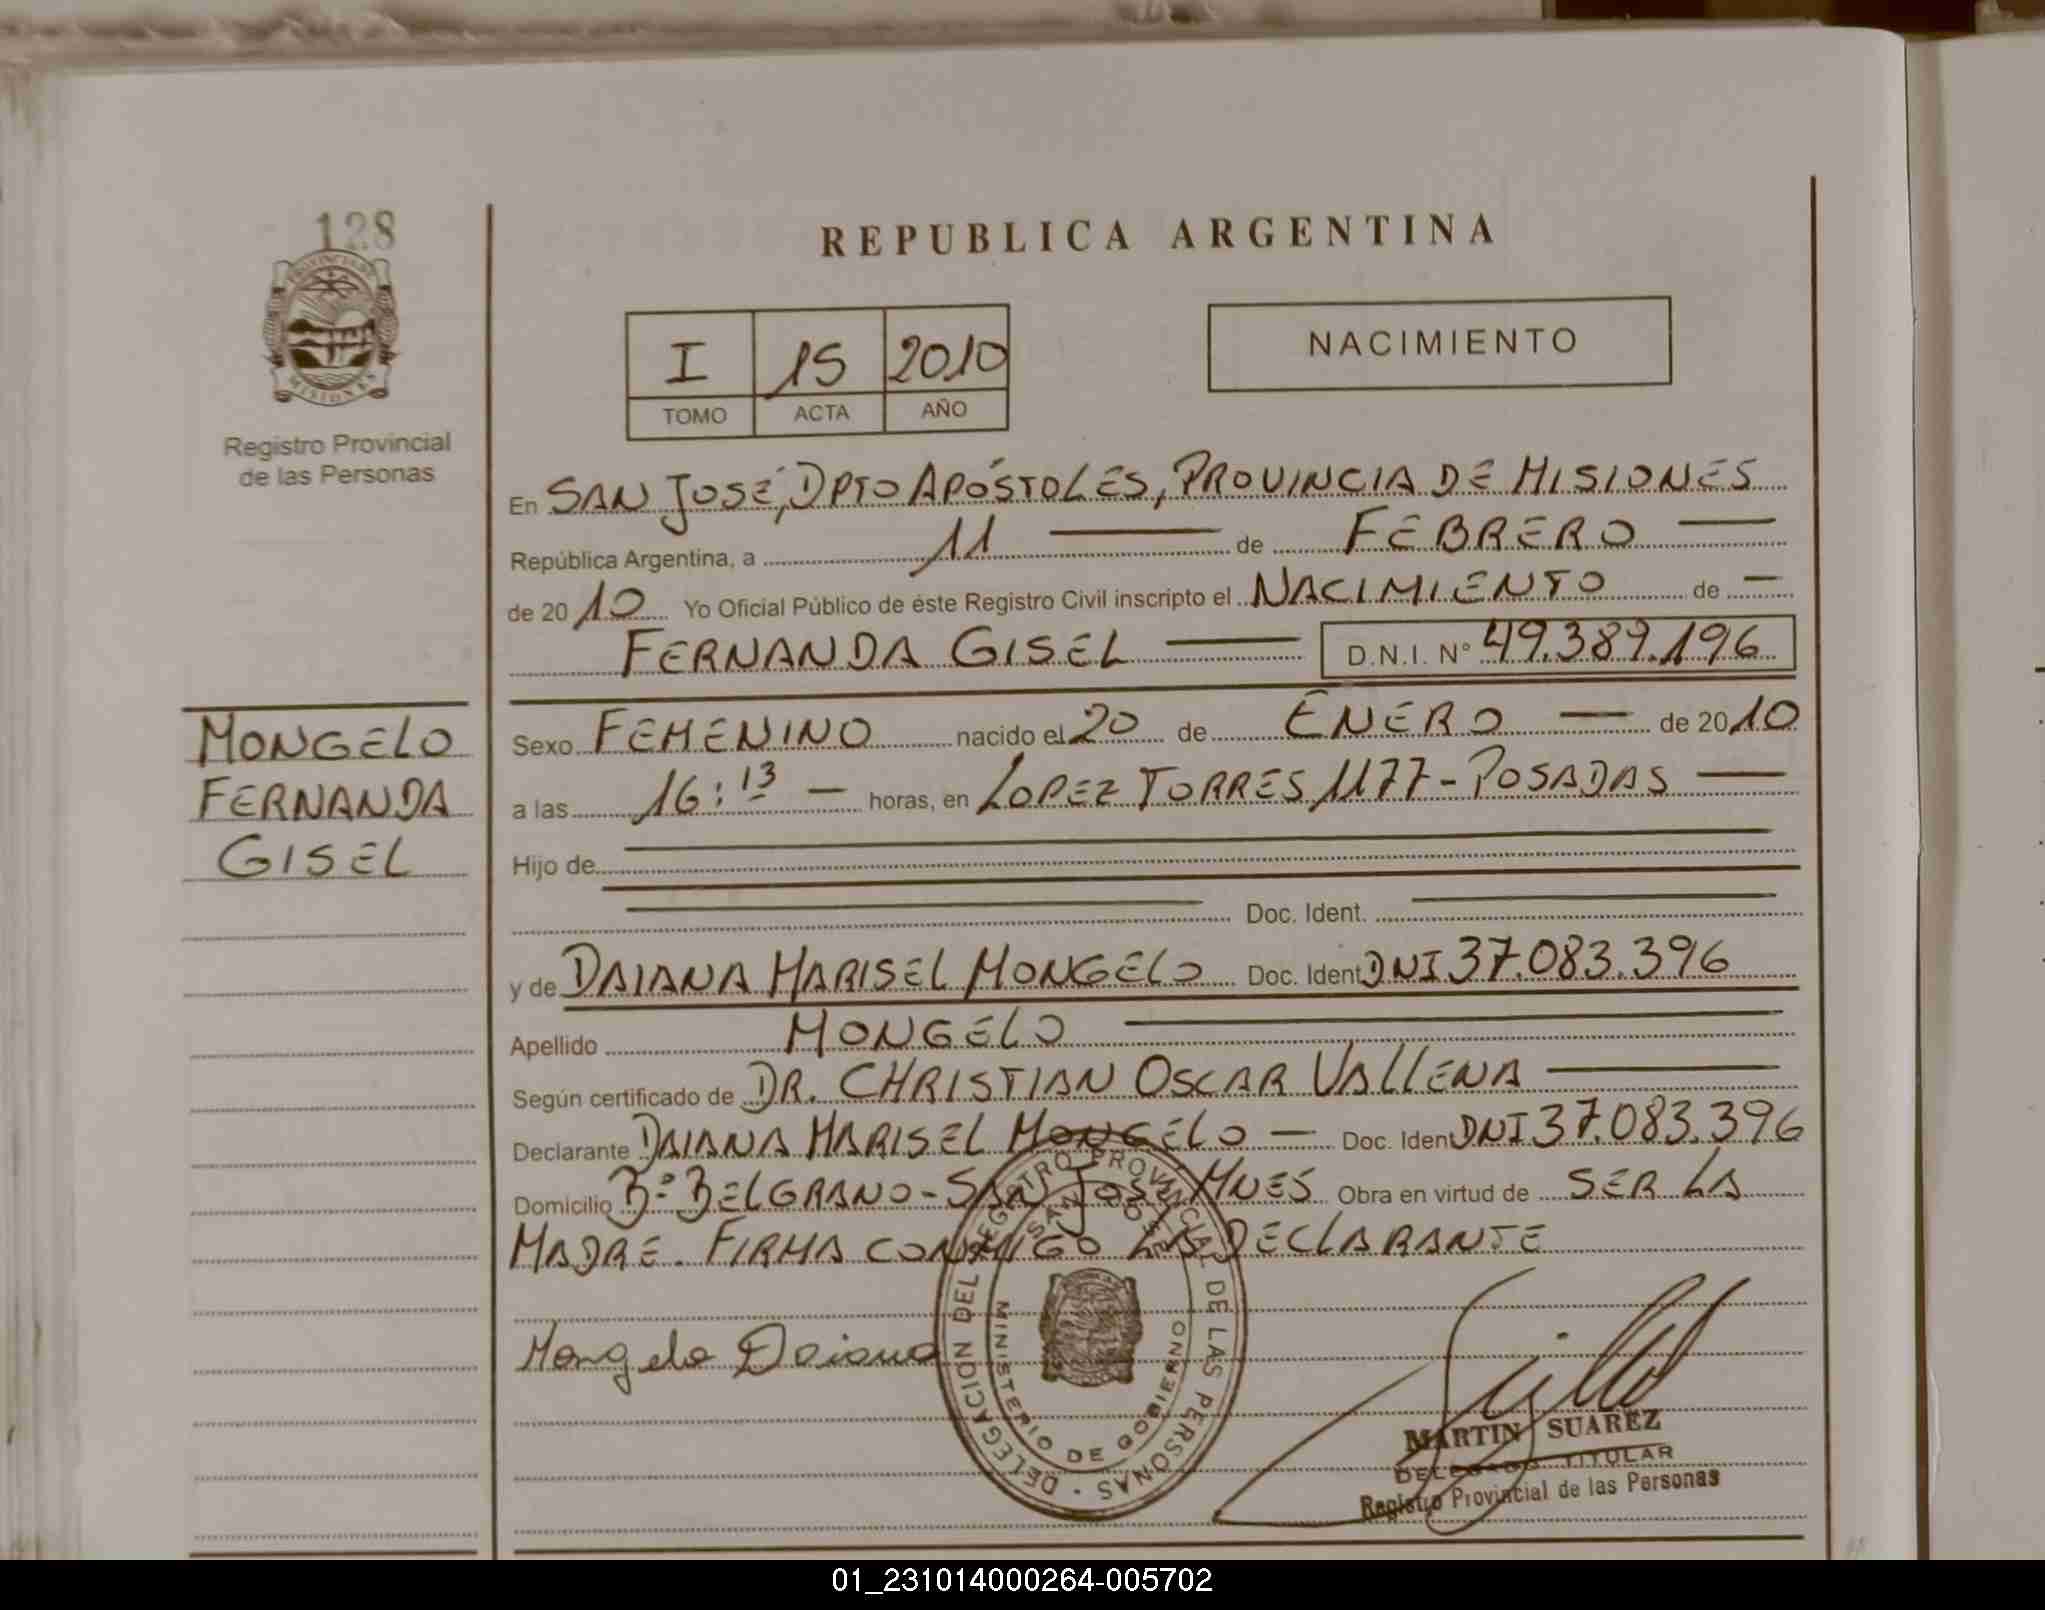 128
PROVINCIA DE
MISIONES
Registro Provincial
de las Personas
MONGELO
FERNANDA
GISEL
REPUBLICA ARGENTINA
I 15 2010
TOMO ACTA AÑO
NACIMIENTO
En SAN JOSÉ, DPTO APÓSTOLES, PROVINCIA DE MISIONES
República Argentina, a 11 de FEBRERO
de 2010 Yo Oficial Público de éste Registro Civil inscripto el NACIMIENTO de
FERNANDA GISEL D.N.I. N° 49.389.196
Sexo FEMENINO nacido el 20 de ENERO de 2010
a las 16:13 horas, en LOPEZ TORRES 1177 - POSADAS
Hijo de
Doc. Ident.
y de DAIANA MARISEL MONGELO Doc. Ident DNI 37.083.396
Apellido MONGELO
Según certificado de DR. CHRISTIAN OSCAR VALLENA
Declarante DAIANA MARISEL MONGELO Doc. Ident DNI 37.083.396
Domicilio B° BELGRANO - SAN JOSÉ MNES Obra en virtud de SER LA
MADRE. FIRMA CONMIGO LA DECLARANTE
Mongelo Daiana
DELEGACION DEL REGISTRO PROVINCIAL DE LAS PERSONAS
SAN JOSE
MINISTERIO DE GOBIERNO
MARTIN SUAREZ
DELEGADO TITULAR
Registro Provincial de las Personas
01_231014000264-005702